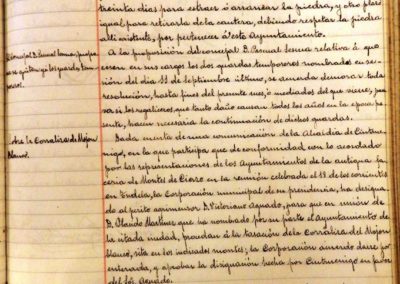 treinta días para extraer ó arrancar la piedra, y otro plazo
igual para retirarla de la cantera, debiendo respetar la piedra
allí existente, por pertenecer á este Ayuntamiento.
El concejal D. Pascual
A la proposición del concejal D. Pascual relativa á que
cesen en sus cargos los dos guardas temporeros nombrados en se-
sión del día 11 de Septiembre último, se acuerda demorar toda
resolución, hasta fines del presente mes, ó mediados del que viene, por
si los rogativos, que tanto daño causan todos los años en la época pre-
sente, hacen necesaria la continuación de dichos guardas.
Sobre la Corraliza de Mojón
blanco.
Dada cuenta de una comunicación de la Alcaldía de Cintrué-
nigo, en la que participa que de conformidad con lo acordado
por las representaciones de los Ayuntamientos de la antigua fa-
cería de Montes de Cierzo en la reunión celebrada el 13 de los corrientes
en Tudela, la Corporación municipal de su presidencia, ha desig-
nado al perito agrimensor D. Victoriano Aguado, para que en unión de
D. Martínez que ha nombrado por su parte el Ayuntamiento de
la citada ciudad, procedan á la tasación de la Corraliza del Mojón
blanco, sita en los indicados montes; la Corporación acuerda darse por
enterada, y aprobar la designación hecha por Cintruénigo en favor
del Sr. Aguado.